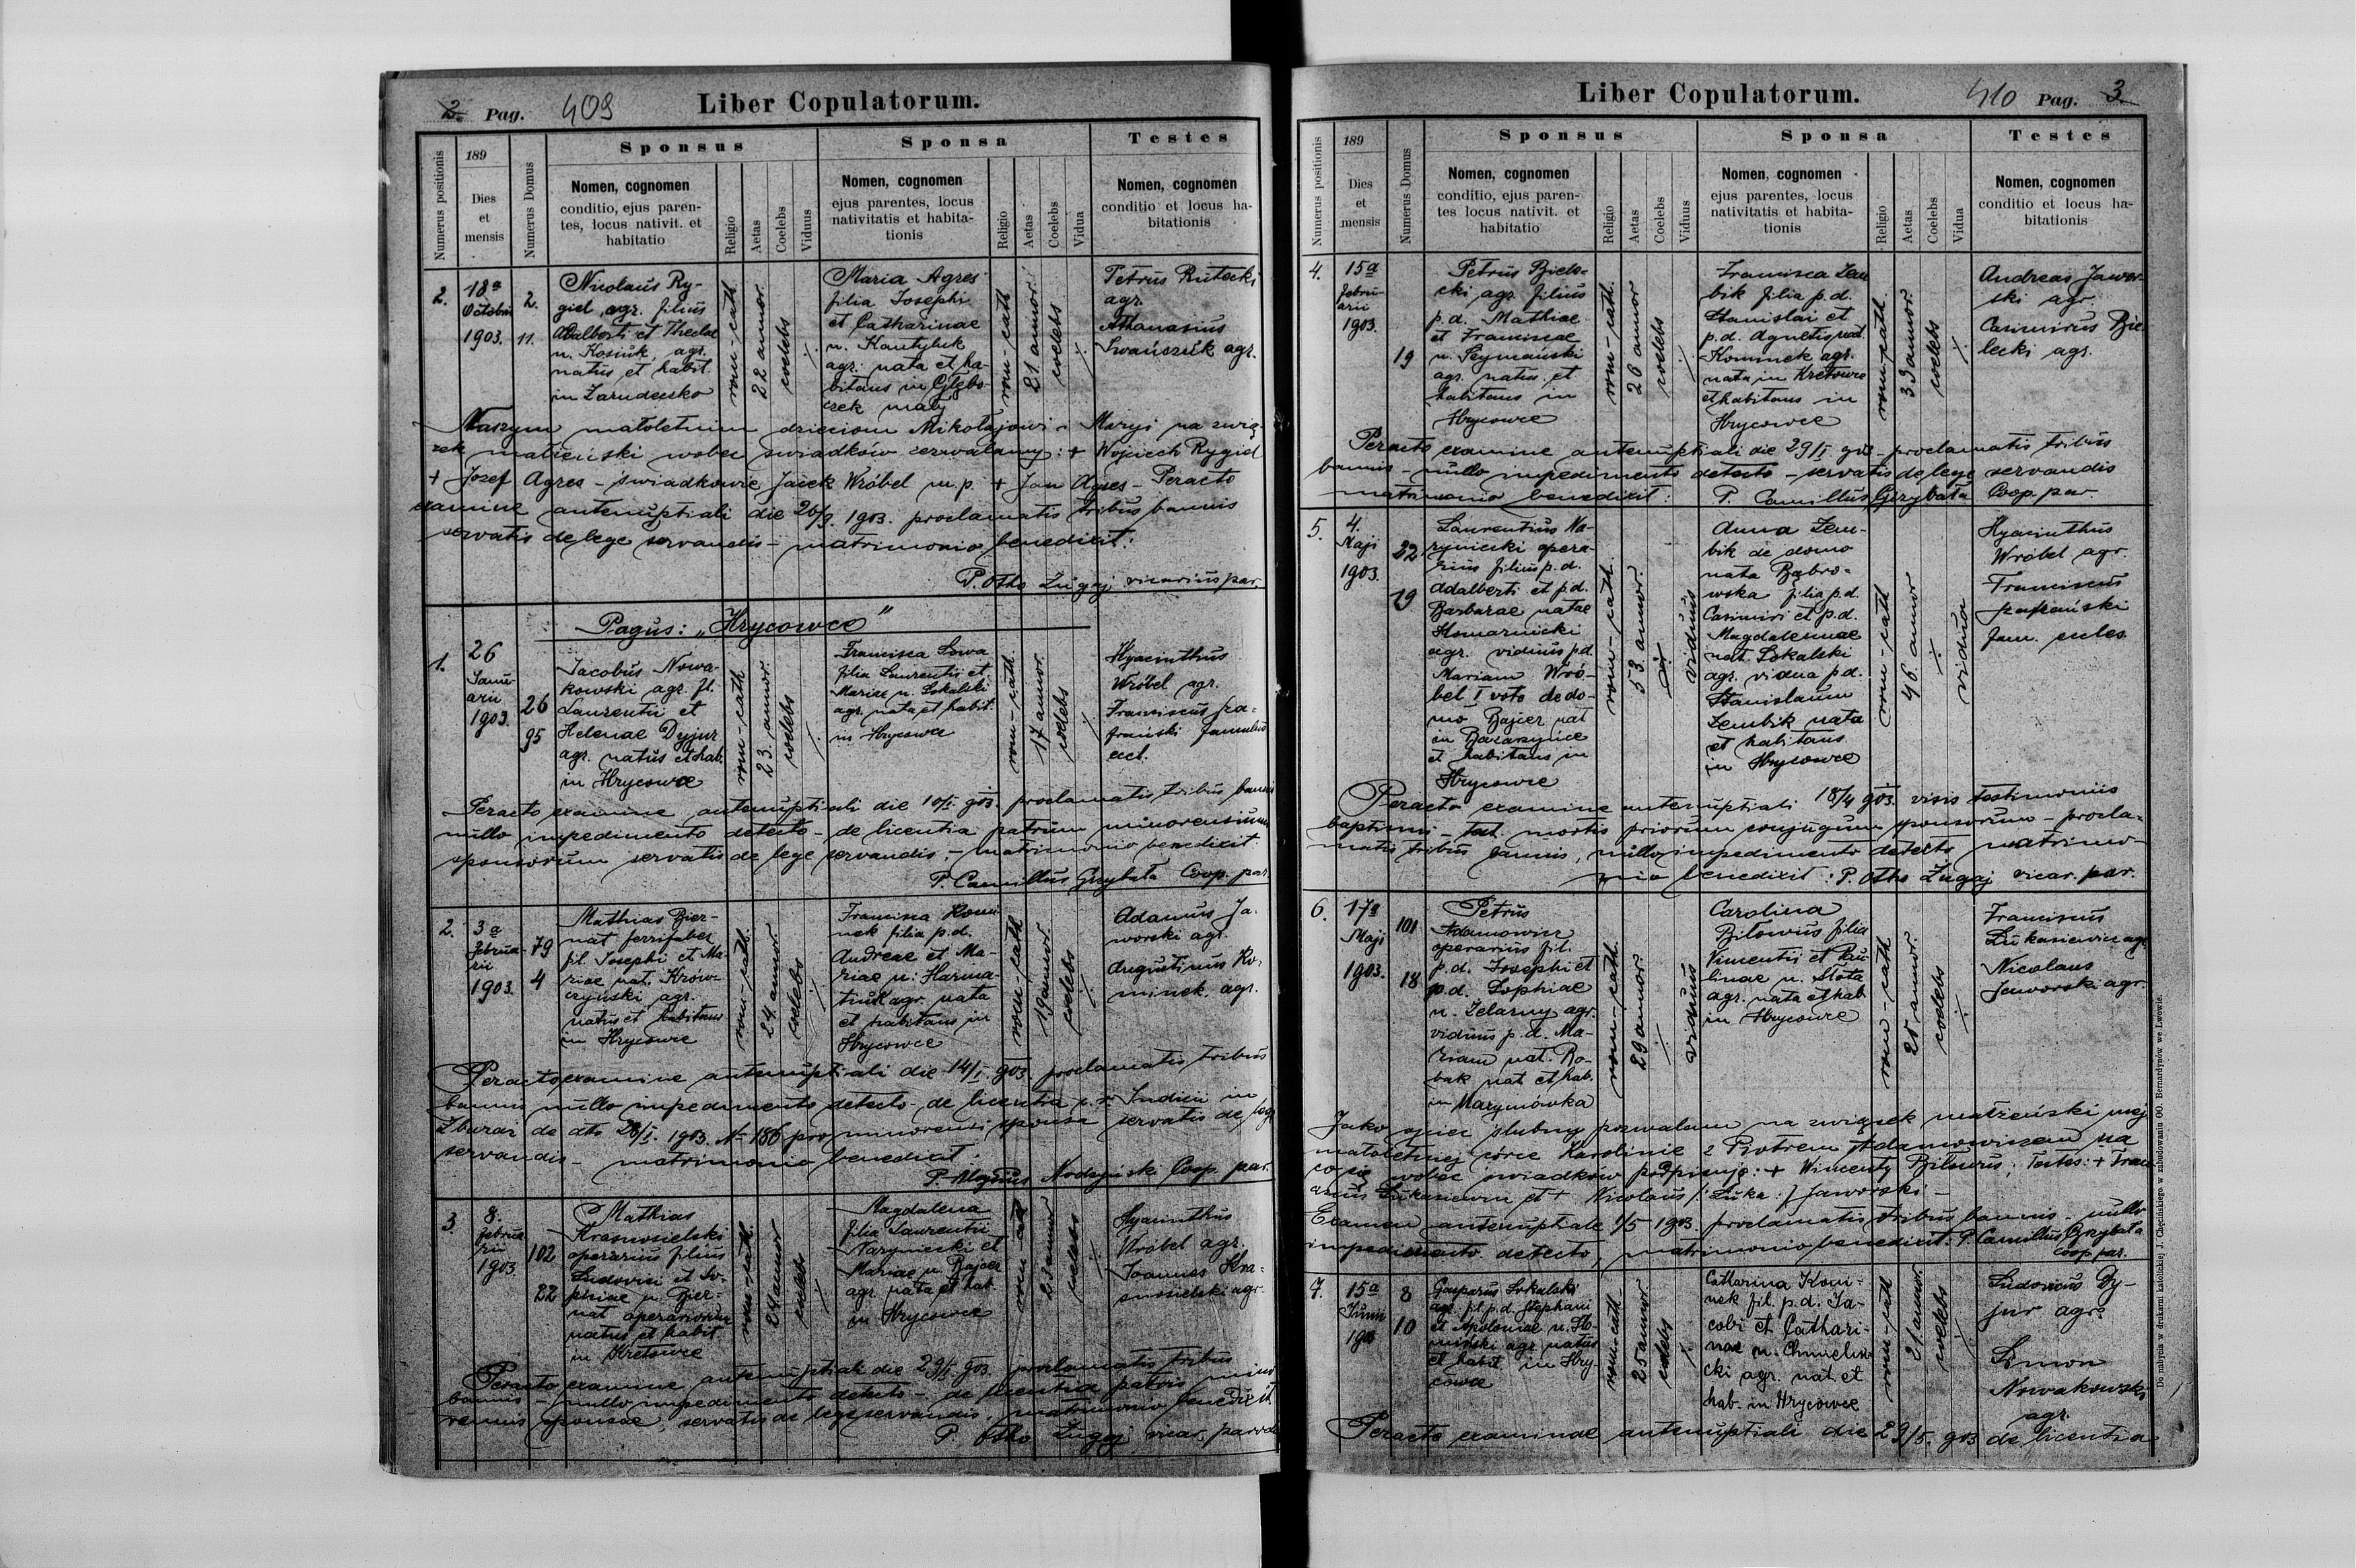 2. Pag. 409 Liber Copulatorum.
Numerus positionis
189
Dies
et
mensis
Numerus Domus
Sponsus
Nomen, cognomen
conditio, ejus paren-
tes, locus nativit. et
habitatio
Religio
Aetas
Coelebs
Viduus
Sponsa
Nomen, cognomen
ejus parentes, locus
nativitatis et habita-
tionis
Religio
Aetas
Coelebs
Vidua
Testes
Nomen, cognomen
conditio et locus ha-
bitationis
2.
18a
Octobri
1903.
2.
11.
Nicolaus Ry-
giel, agr. filius
Adalberti et Theclae
n. Kosiuk, agr.
natus et habit.
in Zarudeczko
rom-cath.
22 annor.
coelebs
Maria Agres
filia Josephi
et Catharinae
n. Kantybek
agr. nata et ha-
bitans in Głębo-
czek mały
rom-cath
21 annor.
coelebs
Petrus Rutecki
agr.
Athanasius
Iwańszuk agr.
Naszym małoletnim dzieciom Mikołajowi i Maryi na zwią-
zek małżeński wobec świadków zezwalamy: + Wojciech Rygiel
+ Josef Agres - świadkowie Jacek Wróbel m.p. + Jan Agres - Peracto
examine antenuptiali die 20/9. 1903. proclamatis tribus bannis
servatis de lege servandis - matrimonio benedixit:
P. Otho Zugaj vicarius par.
Pagus: „Hrycowce"
1.
26
Janu-
arii
1903.
26
95
Jacobus Nowa-
kowski agr. fil.
Laurentii et
Helenae Dyjur
agr. natus et hab.
in Hrycowce
rom-cath
23 annor.
coelebs
Francisca Sowa
filia Laurentii et
Mariae n. Sokalski
agr. nata et habit.
in Hrycowce
rom-cath.
17 annor
coelebs
Hyacinthus
Wróbel agr.
Franciscus
famulus
eccl.
Peracto examine antenuptiali die 10/I. 903. proclamatis tribus bannis
nullo impedimento detecto - de licentia patrum minorensium
sponsorum servatis de lege servandis. - matrimonio benedixit.
P. Camillus Grzybała Coop. par.
2.
3a
Februa-
rii
1903.
79
4
Mathias Bier-
nat ferrifaber
fil Josephi et Ma-
riae nat. Krow-
czyński agr.
natus et habitans
in Hrycowce
rom-cath.
24 annor
coelebs
Francisca Komi-
nek filia p.d.
Andreae et Ma-
riae n. Harma-
tiuk agr. nata
et habitans in
Hrycowce
rom-cath
19 annor.
coelebs
Adamus Ja-
worski agr.
Augustinus Ko-
minek. agr.
Peracto examine antenuptiali die 14/I 903. proclamatis tribus
bannis nullo impedimento detecto - de licentia Judicii in
Zbaraż de dto 28/I. 1903. No 186 pro minorensi sponsa servatis de lege
servandis - matrimonio benedixit:
P. Coop. par.
3.
8.
Februa-
rii
1903
102
22
Mathias
Krasnosielski
operarius filius
Ludovici et So-
phiae n. Bier-
nat operariorum
natus et habit.
in Kretowce
rom-cath.
24 annor
coelebs
Magdalena
filia Laurentii
Naryniecki et
Mariae n. Bajcer
agr. nata et hab.
in Hrycowce
rom-cath
23 annor
coelebs
Hyacinthus
Wróbel agr.
Joannes Kra-
snosielski agr.
Peracto examine antenuptiali die 29/I 903. proclamatis tribus
bannis - nullo impedimento detecto - de licentia patris mino-
rennis sponsae, servatis de lege servandis, matrimonio benedixit
P. Otho Zugaj vicar.
Liber Copulatorum. 410 Pag. 3
Numerus positionis
189
Dies
et
mensis
Numerus Domus
Sponsus
Nomen, cognomen
conditio, ejus paren-
tes locus nativit. et
habitatio
Religio
Aetas
Coelebs
Viduus
Sponsa
Nomen, cognomen
ejus parentes, locus
nativitatis et habita-
tionis
Religio
Aetas
Coelebs
Vidua
Testes
Nomen, cognomen
conditio et locus ha-
bitationis
4.
15a
Febru-
arii
1903.
19
Petrus Biele-
cki agr. filius
p.d. Mathiae
et Franciscae
n. Szymański
agr. natus et
habitans in
Hrycowce
rom-cath.
26 annor
coelebs
Francisca Zem-
bik filia p.d.
Stanislai et
p.d. Agnetis nat.
Kominek agr.
nata in Kretowce
et habitans in
Hrycowce
rom-cath.
33 annor.
coelebs
Andreas Jawor-
ski agr.
Casimirus Bie-
lecki agr.
Peracto examine antenuptiali die 29/I 903 - proclamatis tribus
bannis - nullo impedimento detecto - servatis de lege servandis
matrimonio benedixit: P. Camillus Grzybała Coop. par.
5.
4.
Maji
1903.
22
19
Laurentius Na-
ryniecki opera-
rius filius p.d.
Adalberti et p.d.
Barbarae natae
Komarnicki
agr. viduus p.d.
Mariam Wró-
bel I voto de do-
mo Bajcer nat
in Bazarzyńce
et habitans in
Hrycowce
rom-cath.
53 annor.
viduus
Anna Zem-
bik de domo
nata Dąbro-
wska filia p.d.
Casimiri et p.d.
Magdalenae
nat. Sokalski
agr. vidua p.d.
Stanislaum
Zembik nata
et habitans
in Hrycowce
rom-cath
46 annor
vidua
Hyacinthus
Wróbel agr.
Franciscus
fam. eccles.
Peracto examine antenuptiali 18/4 903. visis testimoniis
baptismi - tat. mortis priorum conjugum sponsorum - procla-
matis tribus bannis, nullo impedimento detecto matrimo-
nio benedixit: P. Otho Zugaj vicar. par.
6.
17a
Maji
1903.
101
18
Petrus
Adamowicz
operarius fil.
p.d. Josephi et
p.d. Sophiae
n. Zelazny agr.
viduus p.d. Ma-
riam nat. Ro-
bak nat et hab.
in Maxymówka
rom-cath.
29 annor.
viduus
Carolina
Biłowus filia
Vincentii et Pau-
linae n. Słota
agr. nata et hab
in Hrycowce
rom-cath
20 annor.
coelebs
Franciscus
Łukasiewicz agr
Nicolaus
Jaworski agr.
Jako ojciec ślubny pozwalam na związek małżeński mej
małoletniej córce Karolinie z Piotrem Adamowiczem na
co się wobec świadków podpisuję: + Wincenty Biłowus; Testes: + Fran-
ciscus Łukasiewicz et + Nicolaus /: Łuka :/ Jaworski -
Examen antenuptiale 1/5 1903. proclamatis tribus bannis - nullo
impedimento detecto, matrimonio benedixit: P. Camillus Grzybała
coop. par.
7.
15a
Junii
190
8
10
Gasparus Sokalski
agr. fil. p.d. Stephani
et Apoloniae n.
agr. natus
et habit in Hry-
cowce
rom-cath
25 annor
coelebs
Catharina Komi-
nek fil. p.d. Ja-
cobi et Cathari-
nae n. Chmieliń-
cki agr. nat. et
hab. in Hrycowce
rom-cath
21 annor.
coelebs
Ludovicus Dy-
jur agr.
Simon
Nowakowski
agr.
Peracto examinae antenuptiali die 29/5. 903 de licentia
Do nabycia w drukarni katolickiej J. Chęcińskiego w zabudowaniu OO. Bernardynów we Lwowie.